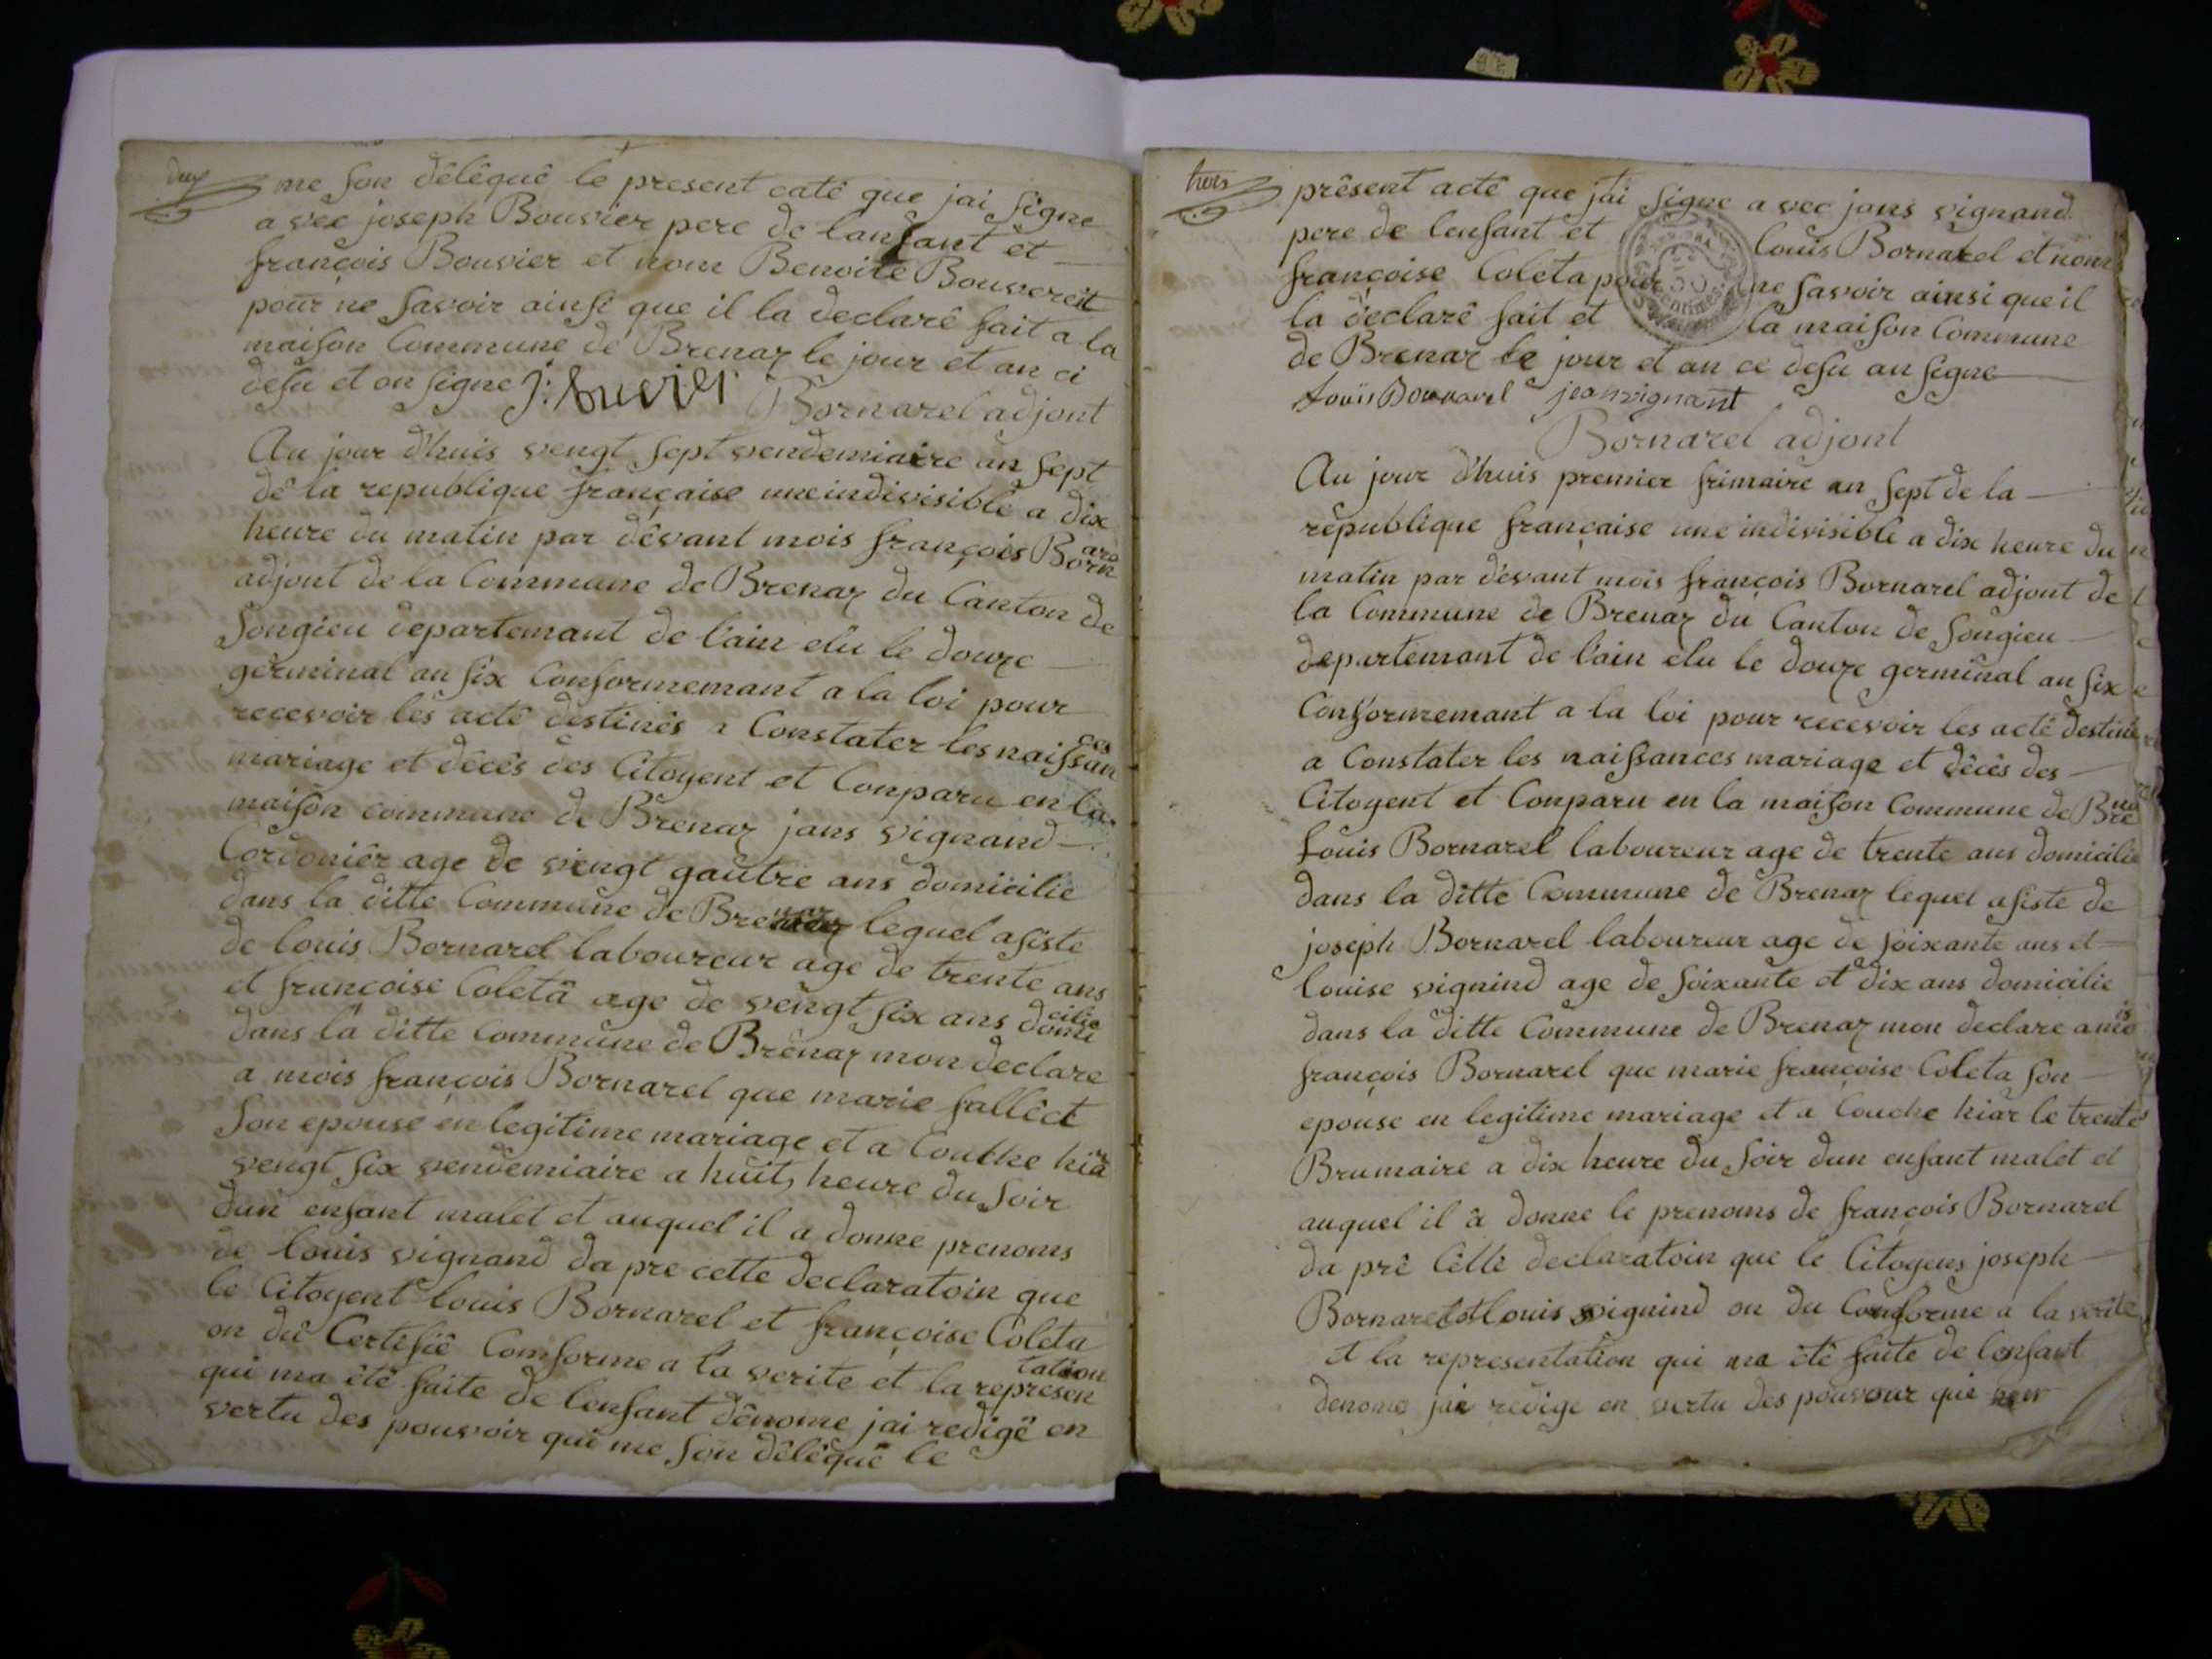 deux
me son délêguê le present catê que jai signe
avec joseph Bouvier pere de lansant et
françois Bouvier et nom Benoite Bouvereit
pour ne savoir ainsi que il la declarê fait a la
maison Commune de Brenaz le jour et an ci
desu et on signe J: Buvier
Bornarel adjont
Au jour d'huis vengt sept vendemiaire an sept
dê la republique française une indivisible a dix
heure du matin par dêvant mois françois Bornare
adjont de la Commune de Brenaz du Canton de
Songieu departemant de l'ain elu le douze
gêrminal an six Consormemant a la loi pour
recevoir lês actê destinês a Constater les naissances
mariage et dêcês des Citoyent et Conparu en la
maison commune de Brenaz jans vignand
Cordoniêr age de viengt gautre ans domicilie
dans la ditte Commune de Brenaz lequel asiste
de louis Bornarel laboureur age de trente ans
et françoise Coleta age de vengt six ans domicilie
dans la ditte Commune de Brênaz mon declare
a mois françois Bornarel que marie fallêct
Son epouse en legitime mariage et a Couche hiar
vengt six vendemiaire a huit heure du soir
dun ensant malet et auquel il a donne prenoms
de louis vignand da pre cette declaratoin que
le Citoyent louis Bornarel et françoise Coleta
on dû Certisiê Comsorme a la verite et la representation
qui ma êtê faite de lensant dênome jai redigê en
vertu des pouvoir qui me son dêlêguê le
trois
prêsent actê que jai signe avec jans vignand
pere de lensant et louis Bornarel et nom
françoise Coleta pour ne savoir ainsi que il
la declarê fait et la maison Commune
de Brenaz le jour et an ce desu an signe
Louis Bornarel jean vignant
Bornarel adjont
Au jour d'huis premier frimaire an sept de la
republique française une indivisible a dix heure du
matin par dêvant mois françois Bornarel adjont de
la Commune de Brenaz du Canton de Songieu
departemant de l'ain elu le douze germinal an six
Consormemant a la loi pour recevoir les actê destinê
a Constater les naissances mariage et dêcês des
Citoyent et Conparu en la maison Commune de Brena
Louis Bornarel laboureur age de trente ans domicilie
dans la ditte Commune de Brenaz lequel asiste de
joseph Bornarel laboureur age de soixante ans et
louise vignind age de soixante et dix ans domicilie
dans la ditte Commune de Brenaz mon declare a mois
françois Bornarel que marie françoise Coleta son
epouse en legitime mariage et a Couche hiar le trente
Brumaire a dix heure du soir dun ensant malet et
auquel il â donne le prenoms de françois Bornarel
da prê Cette declaratoin que le Citoyens joseph
Bornarel et louis vignind on du Consorme a la verite
et la representation qui ma êtê faite de lensant
denome jai redige en vertu des pouvour que